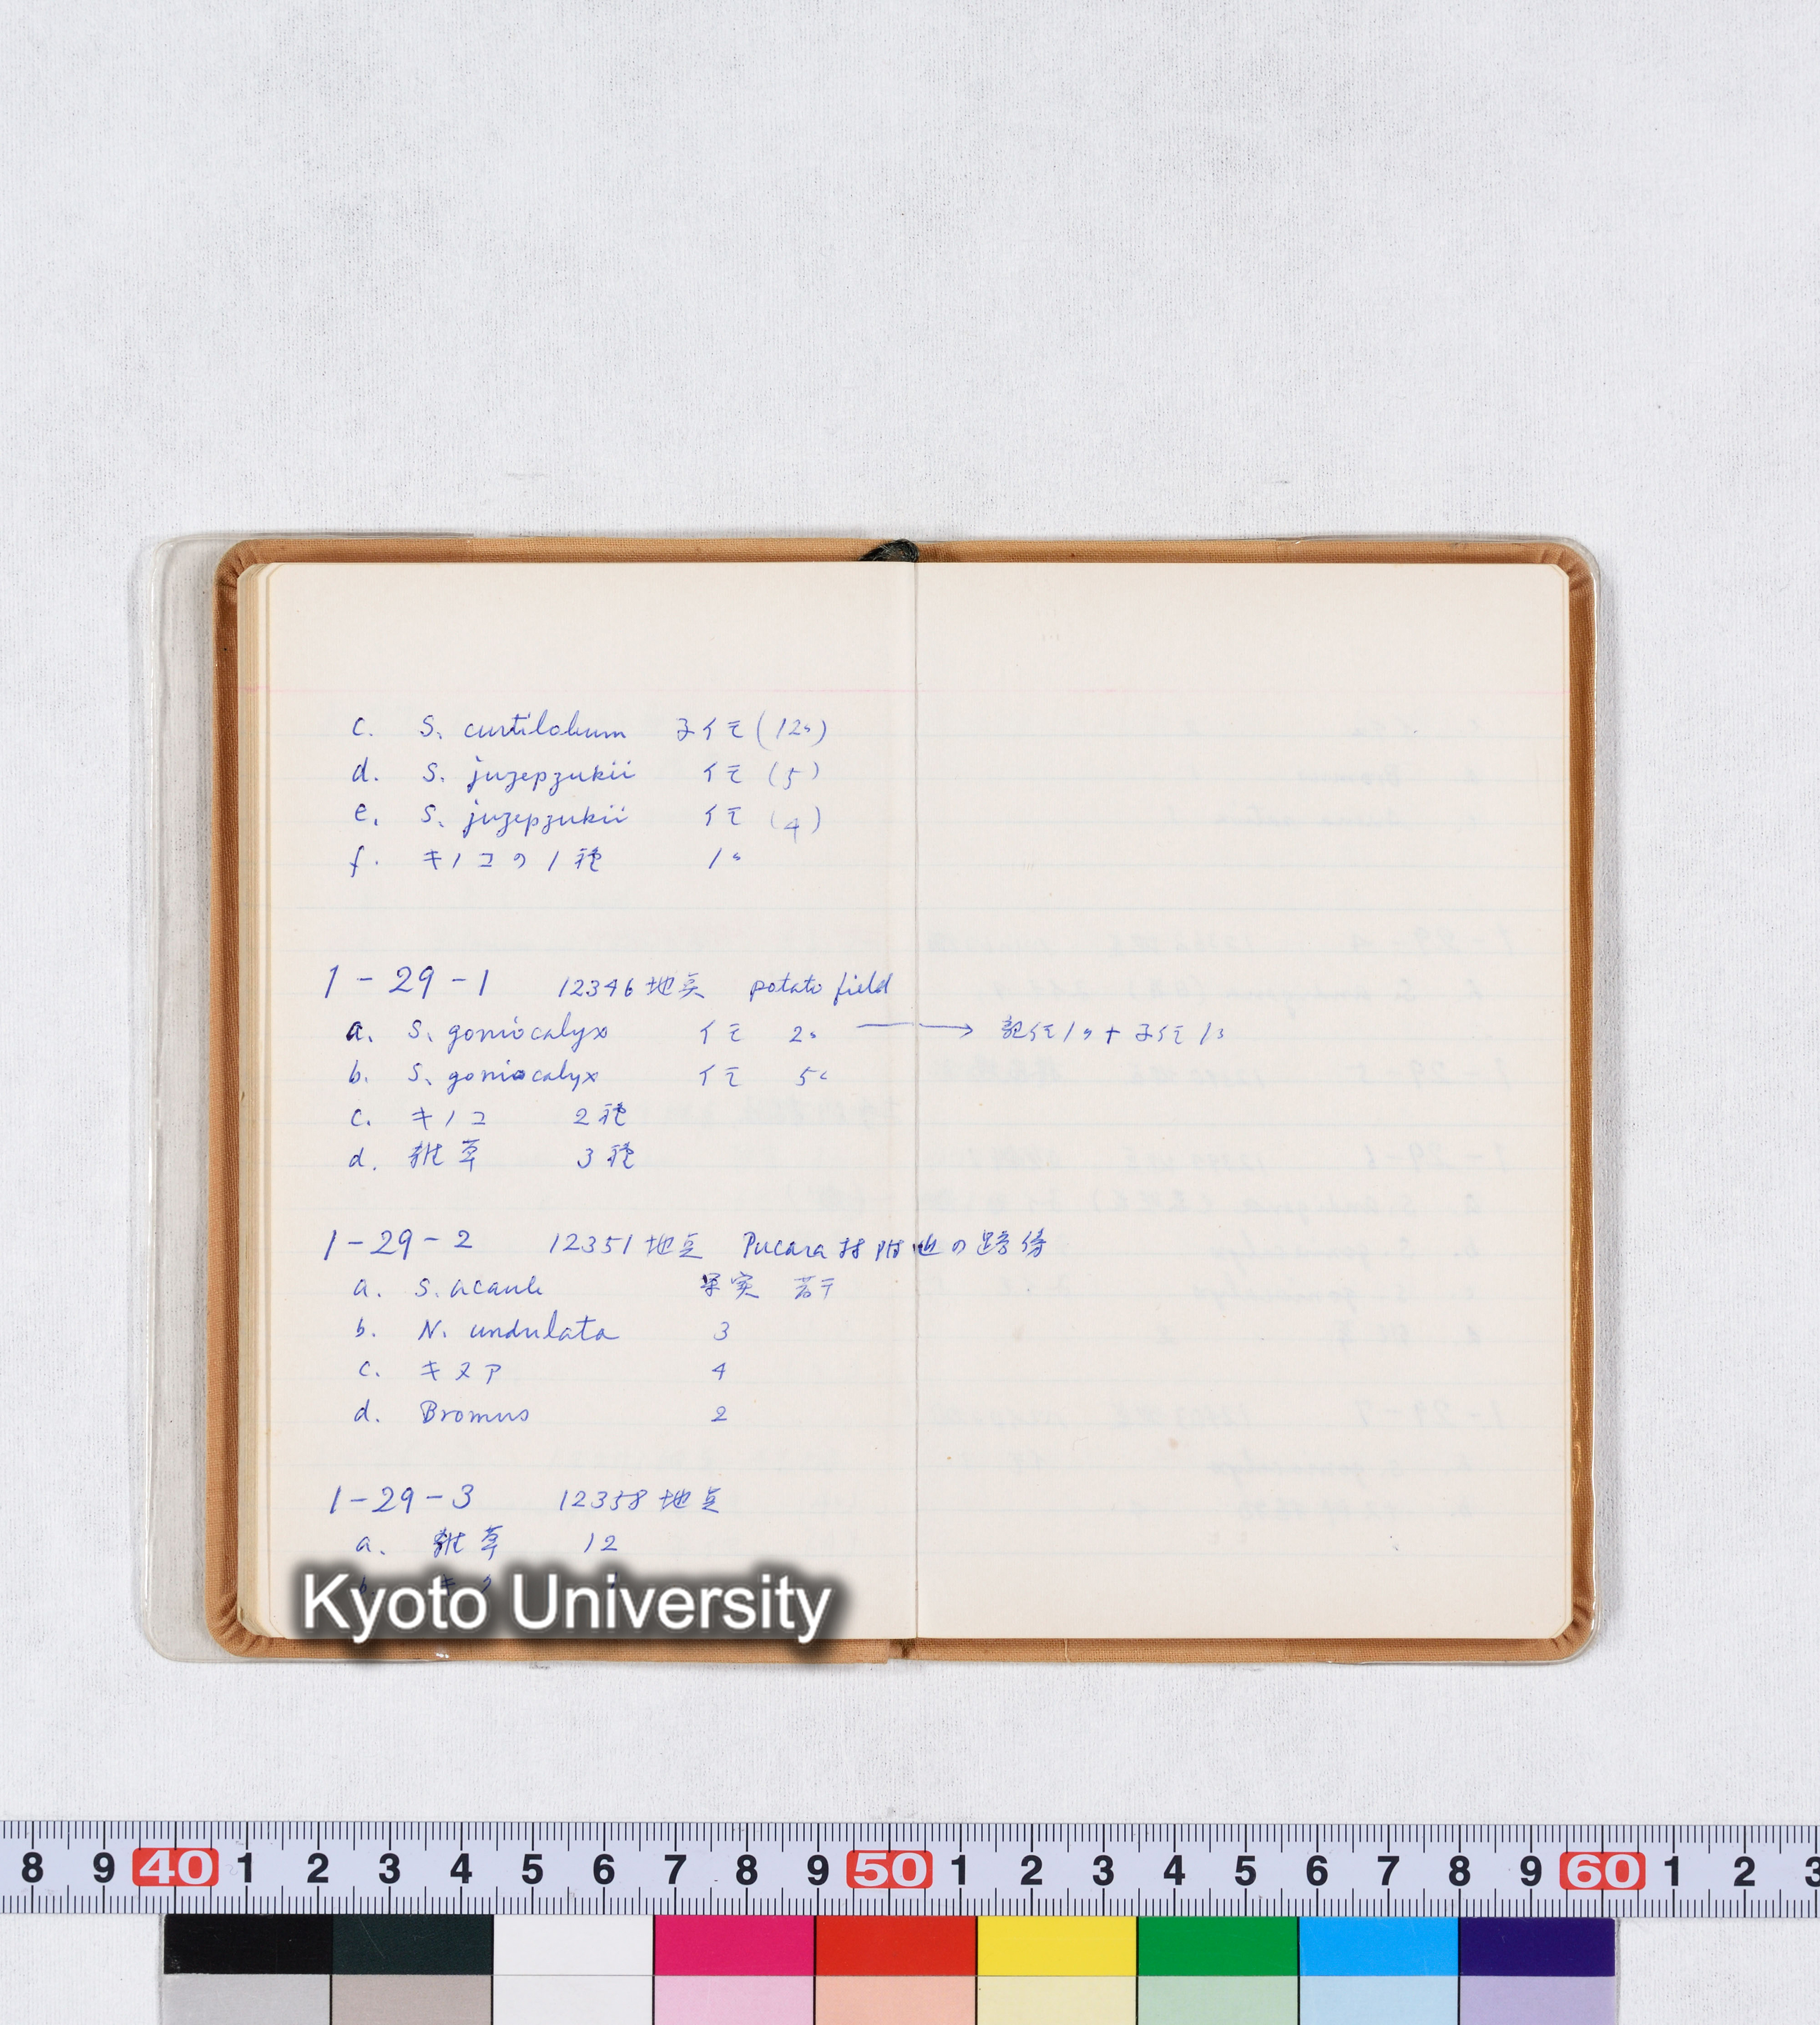 c. S. curtilobum 子イモ (12コ)
d. S. juzepzukii イモ (5)
e. S. juzepzukii イモ (4)
f. キノコの1種 1コ
1-29-1 12346地点 potato field
a. S. goniocalyx イモ 2コ → 親イモ1コ+子イモ1コ
b. S. goniocalyx イモ 5コ
c. キノコ 2種
d. 雑草 3種
1-29-2 12351地点 Pucara村附近の路傍
a. S. acaule 果実 若干
b. N. undulata 3
c. キヌア 4
d. Bromus 2
1-29-3 12358地点
a. 雑草 12
b.
Kyoto University
8 9 40 1 2 3 4 5 6 7 8 9 50 1 2 3 4 5 6 7 8 9 60 1 2 3